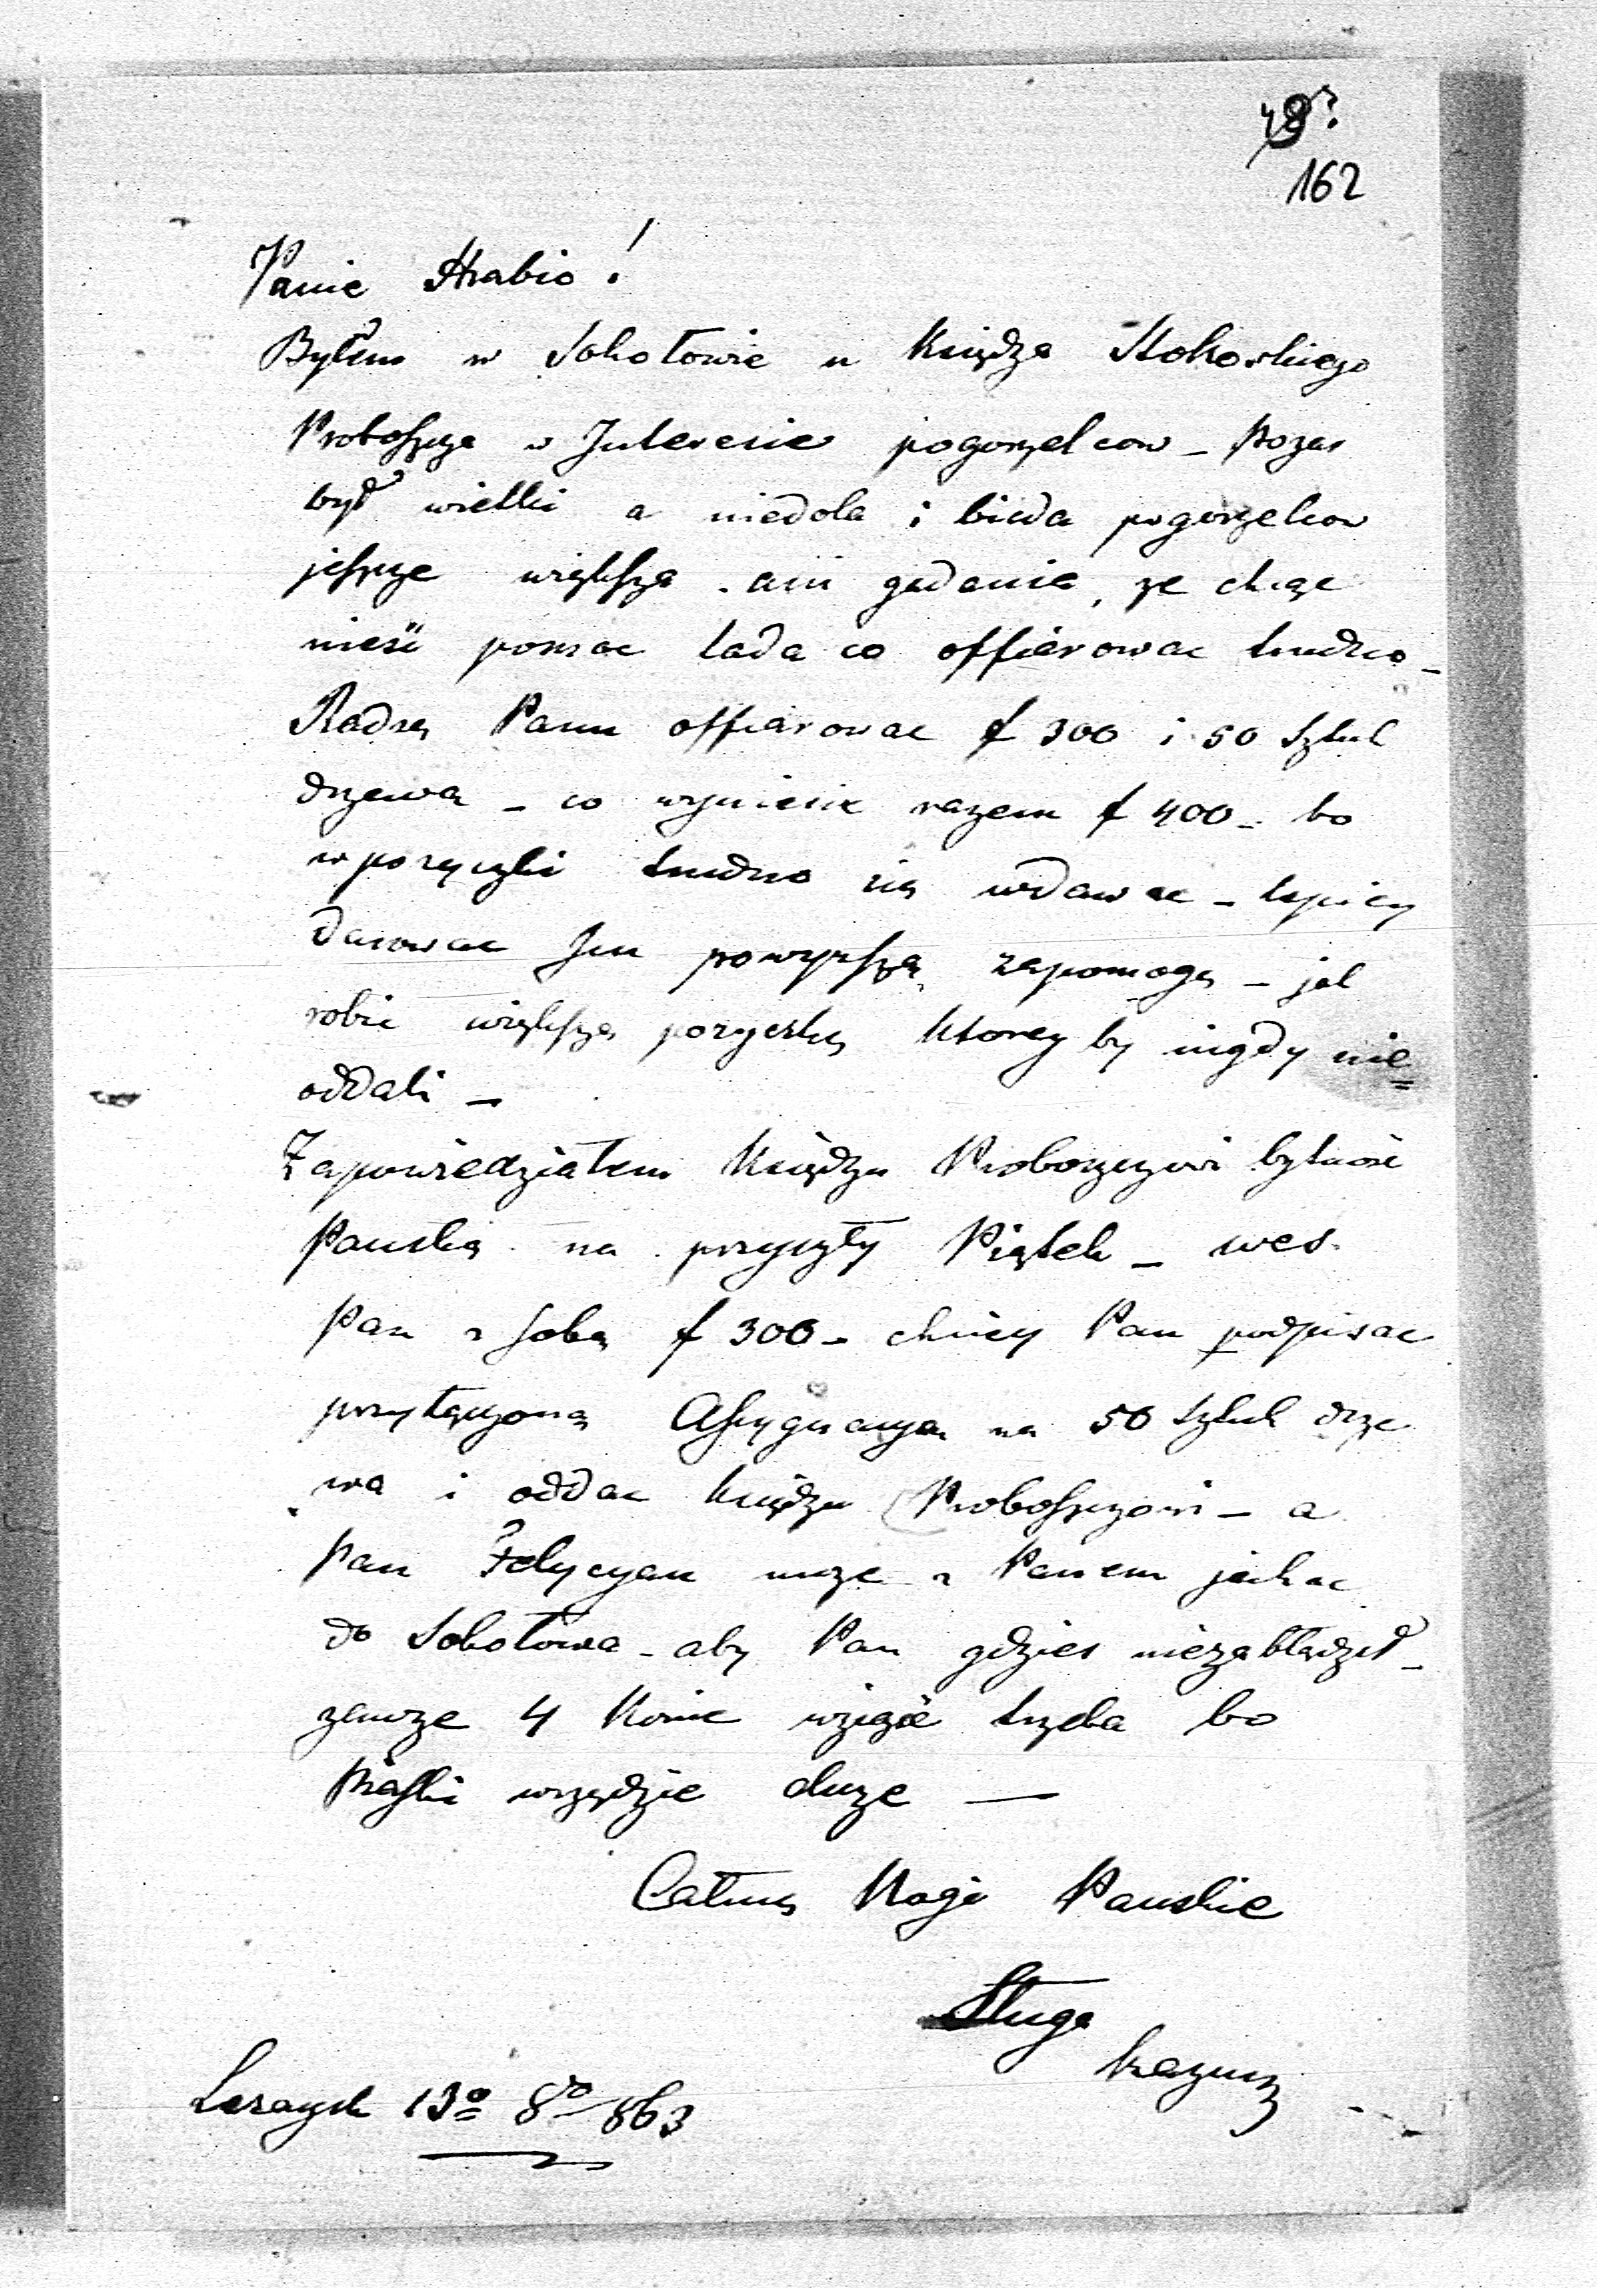 48?
162
Panie Hrabio!
Byłem w Sokołowie u Księdza Stokoskiego
Proboszcza w Interesie pogorzelcow – Pozar
był wielki a niedola i bieda pogorzelcow
jeszcze większa – ani gadania, ze chcąc
nieść pomoc lada co offiarowac trudno –
Radzę Panu offiarowac f 300 i 50 Sztuk
drzewa – co wyniesie razem f 400 – bo
w pozyczki trudno się wdawac – lepiey
darowac Im powyzszą zapomogę – jak
robic większą pozyczkę ktorey by nigdy nie=
oddali –
Zapowiedziałem Księdzu Proboszczowi bytność
Panską na przyszły Piątek – wes
Pan z sobą f 300 – chciey Pan podpisac
przyłączoną Assygnacyą na 50 Sztuk drze
wa i oddac Księdzu Proboszczowi – a
Pan Felycyan moze z Panem jechac
do Sokołowa – aby Pan gdzies niezabłądził –
zawsze 4 Konie wziąść trzeba bo
Piaski wszędzie duze —
Całuię Nogi Panskie
Sługa
Lezaysk 13º 8º 863